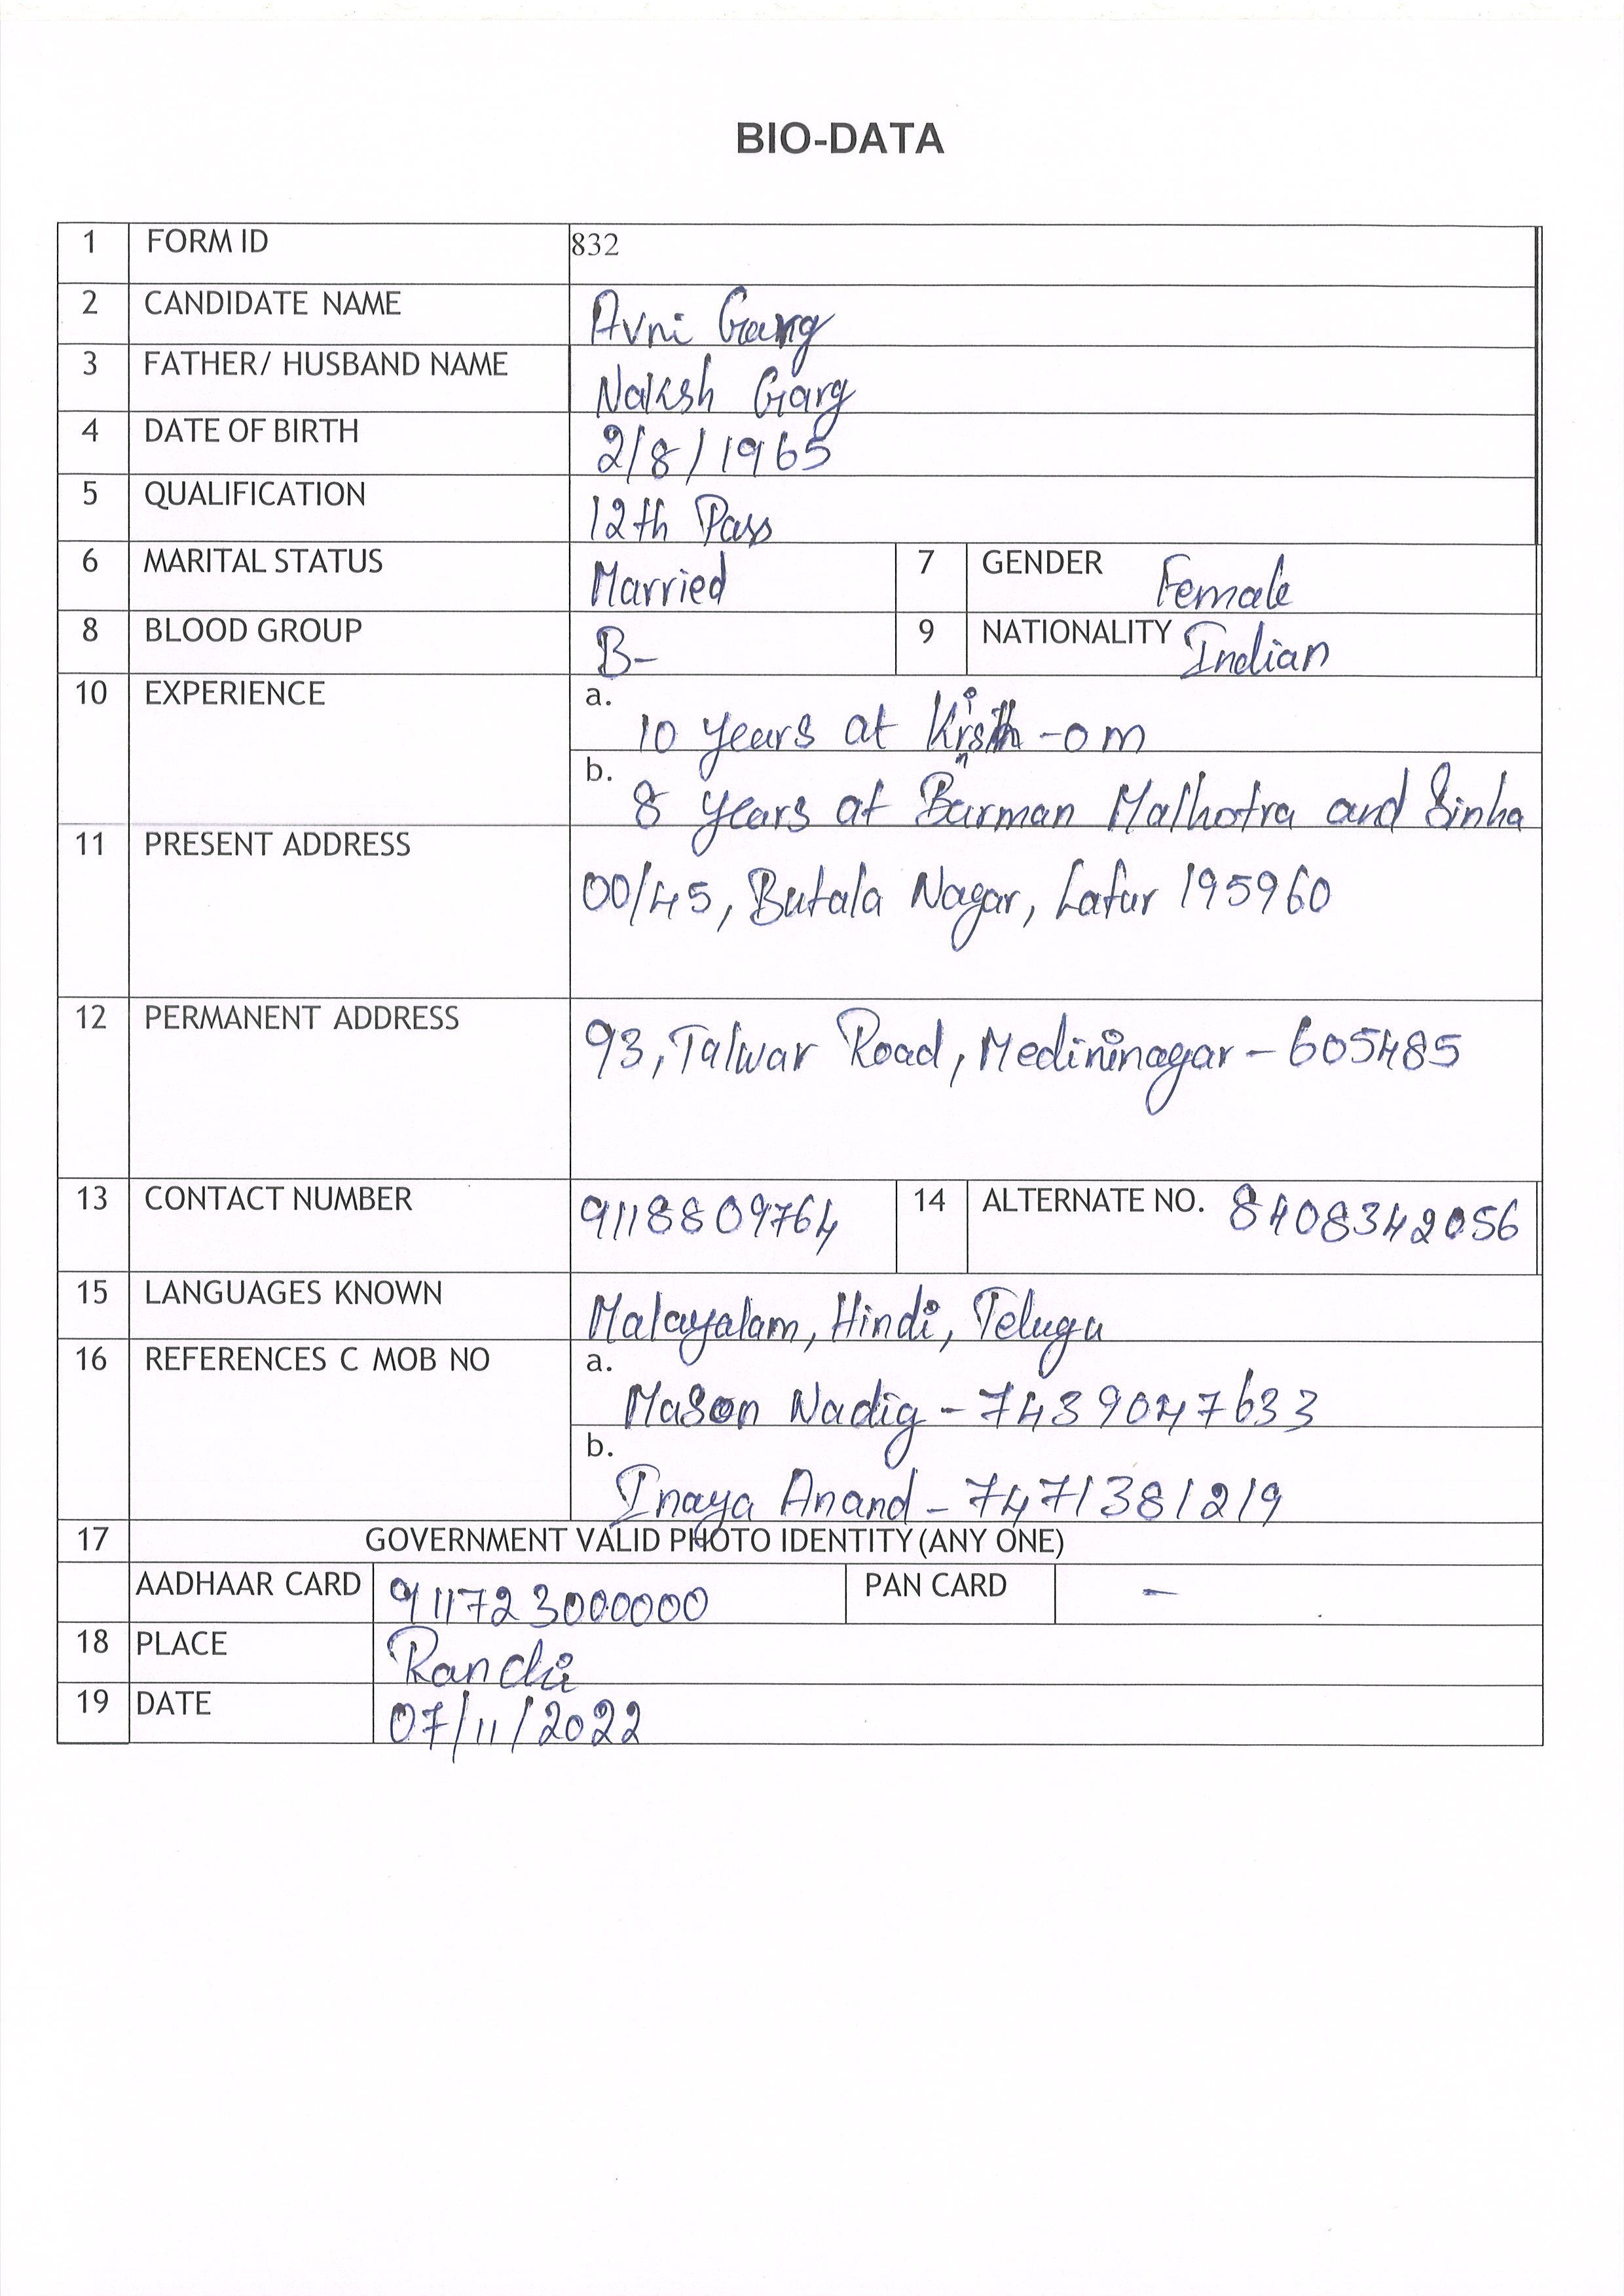 BIO-DATA
1 FORM ID 832
2 CANDIDATE NAME Avni Garg
3 FATHER/ HUSBAND NAME Naksh Garg
4 DATE OF BIRTH 2/8/1965
5 QUALIFICATION 12th Pass
6 MARITAL STATUS Married 7 GENDER Female
8 BLOOD GROUP B- 9 NATIONALITY Indian
10 EXPERIENCE a. 10 years at -om
b. 8 years at Barman Malhotra and Sinha
11 PRESENT ADDRESS 00/45, Butala Nagar, Latur 195960
12 PERMANENT ADDRESS 93, Talwar Road, Medininagar - 605485
13 CONTACT NUMBER 9118809764 14 ALTERNATE NO. 8408342056
15 LANGUAGES KNOWN Malayalam, Hindi, Telugu
16 REFERENCES C MOB NO a. Mason Nadig - 7439047633
b. Inaya Anand - 7471381219
17 GOVERNMENT VALID PHOTO IDENTITY (ANY ONE)
AADHAAR CARD 911723000000 PAN CARD -
18 PLACE Ranchi
19 DATE 07/11/2022